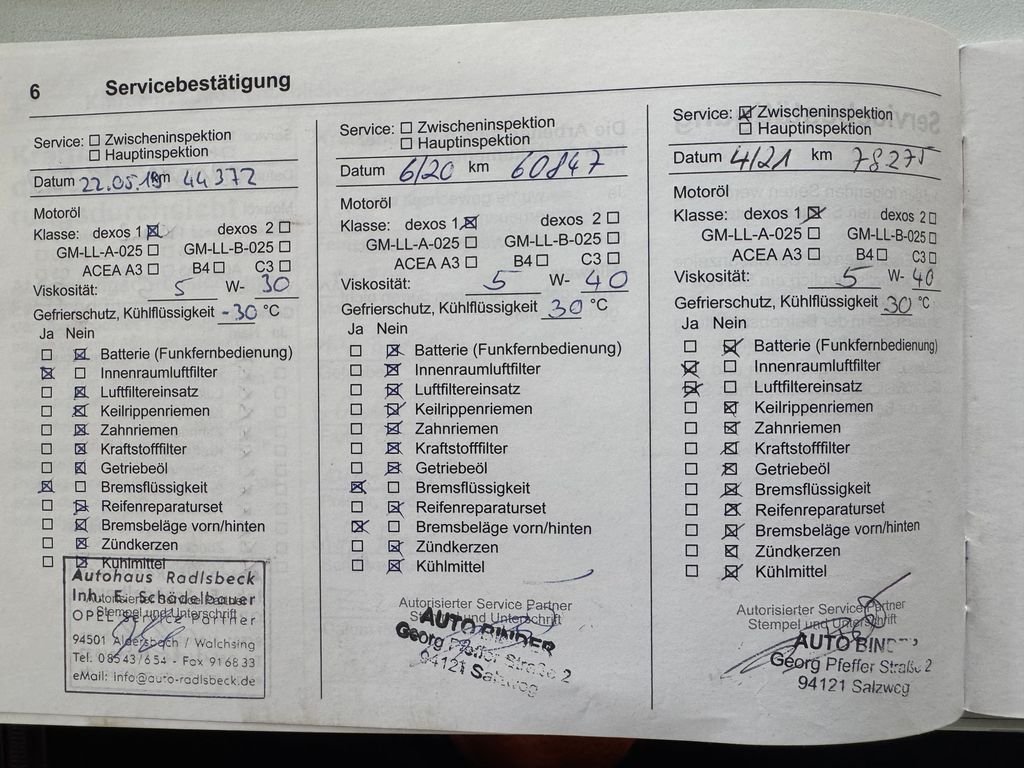 6 Servicebestätigung
Service: ☐ Zwischeninspektion
☐ Hauptinspektion
Datum 22.05.19 km 44 372
Motoröl
Klasse: dexos 1 ☒ dexos 2 ☐
GM-LL-A-025 ☐ GM-LL-B-025 ☐
ACEA A3 ☐ B4 ☐ C3 ☐
Viskosität: 5 W- 30
Gefrierschutz, Kühlflüssigkeit -30 °C
Ja Nein
☐ ☒ Batterie (Funkfernbedienung)
☒ ☐ Innenraumluftfilter
☐ ☒ Luftfiltereinsatz
☐ ☒ Keilrippenriemen
☐ ☒ Zahnriemen
☐ ☒ Kraftstofffilter
☐ ☒ Getriebeöl
☒ ☐ Bremsflüssigkeit
☐ ☒ Reifenreparaturset
☐ ☒ Bremsbeläge vorn/hinten
☐ ☒ Zündkerzen
☐ ☒ Kühlmittel
Autohaus Radlsbeck
Inh. E. Schädelbauer
Autorisierter Service Partner
OPEL Service Partner
Stempel und Unterschrift
94501 Aldersbach / Walchsing
Tel. 08543/654 - Fax 916833
eMail: info@auto-radlsbeck.de
Service: ☐ Zwischeninspektion
☐ Hauptinspektion
Datum 6/20 km 60847
Motoröl
Klasse: dexos 1 ☒ dexos 2 ☐
GM-LL-A-025 ☐ GM-LL-B-025 ☐
ACEA A3 ☐ B4 ☐ C3 ☐
Viskosität: 5 W- 40
Gefrierschutz, Kühlflüssigkeit 30 °C
Ja Nein
☐ ☒ Batterie (Funkfernbedienung)
☐ ☒ Innenraumluftfilter
☐ ☒ Luftfiltereinsatz
☐ ☒ Keilrippenriemen
☐ ☒ Zahnriemen
☐ ☒ Kraftstofffilter
☐ ☒ Getriebeöl
☒ ☐ Bremsflüssigkeit
☐ ☒ Reifenreparaturset
☒ ☐ Bremsbeläge vorn/hinten
☐ ☒ Zündkerzen
☐ ☒ Kühlmittel
Autorisierter Service Partner
Stempel und Unterschrift
AUTO BINDER
Georg Pfeffer Straße 2
94121 Salzweg
Service: ☒ Zwischeninspektion
☐ Hauptinspektion
Datum 4/21 km 78275
Motoröl
Klasse: dexos 1 ☒ dexos 2 ☐
GM-LL-A-025 ☐ GM-LL-B-025 ☐
ACEA A3 ☐ B4 ☐ C3 ☐
Viskosität: 5 W- 40
Gefrierschutz, Kühlflüssigkeit 30 °C
Ja Nein
☐ ☒ Batterie (Funkfernbedienung)
☒ ☐ Innenraumluftfilter
☒ ☐ Luftfiltereinsatz
☐ ☒ Keilrippenriemen
☐ ☒ Zahnriemen
☐ ☒ Kraftstofffilter
☐ ☒ Getriebeöl
☐ ☒ Bremsflüssigkeit
☐ ☒ Reifenreparaturset
☐ ☒ Bremsbeläge vorn/hinten
☐ ☒ Zündkerzen
☐ ☒ Kühlmittel
Autorisierter Service Partner
Stempel und Unterschrift
AUTO BIN
Georg Pfeffer Straße 2
94121 Salzweg